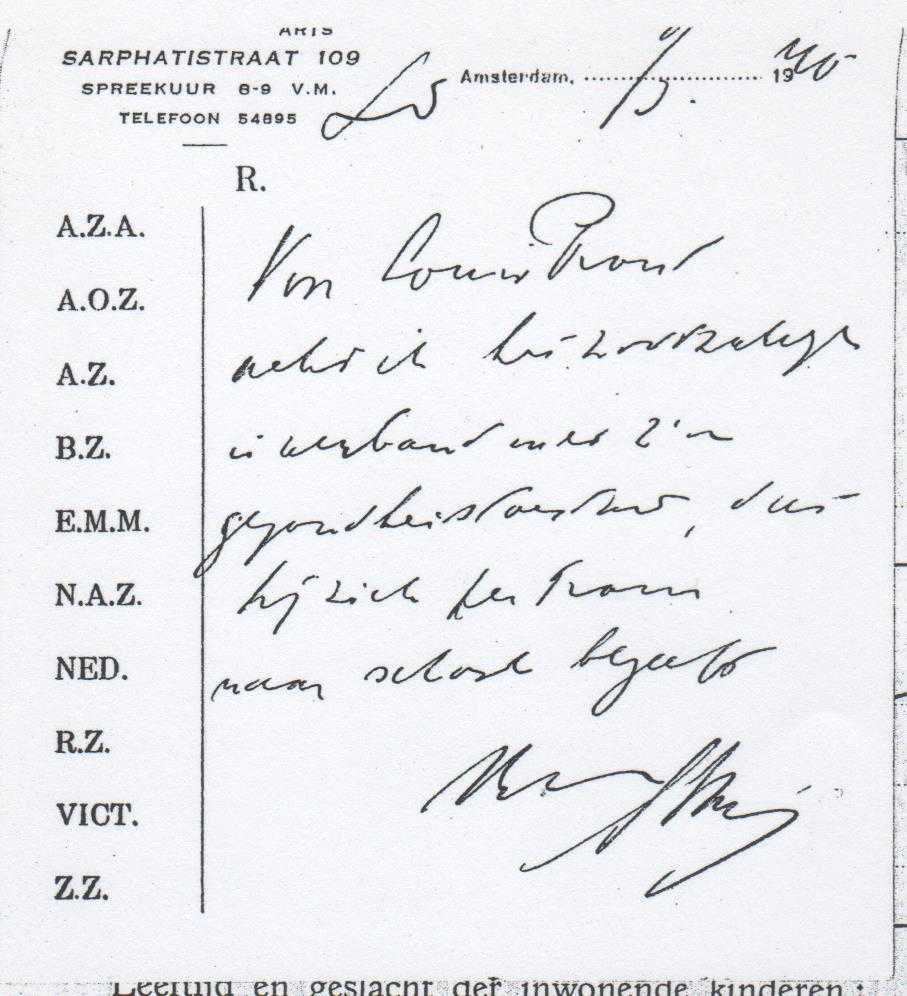 ARTS
SARPHATISTRAAT 109
SPREEKUUR 8-9 V.M.
TELEFOON 54895
LS
Amsterdam, 9/9. 1940
R.
A.Z.A.
A.O.Z.
A.Z.
B.Z.
E.M.M.
N.A.Z.
NED.
R.Z.
VICT.
Z.Z.
Voor Louis
acht ik het noodzakelijk
in verband met z'n
gezondheidstoestand, dat
hij zich per tram
naar school begeeft
Leeftijd en geslacht der inwonende kinderen :